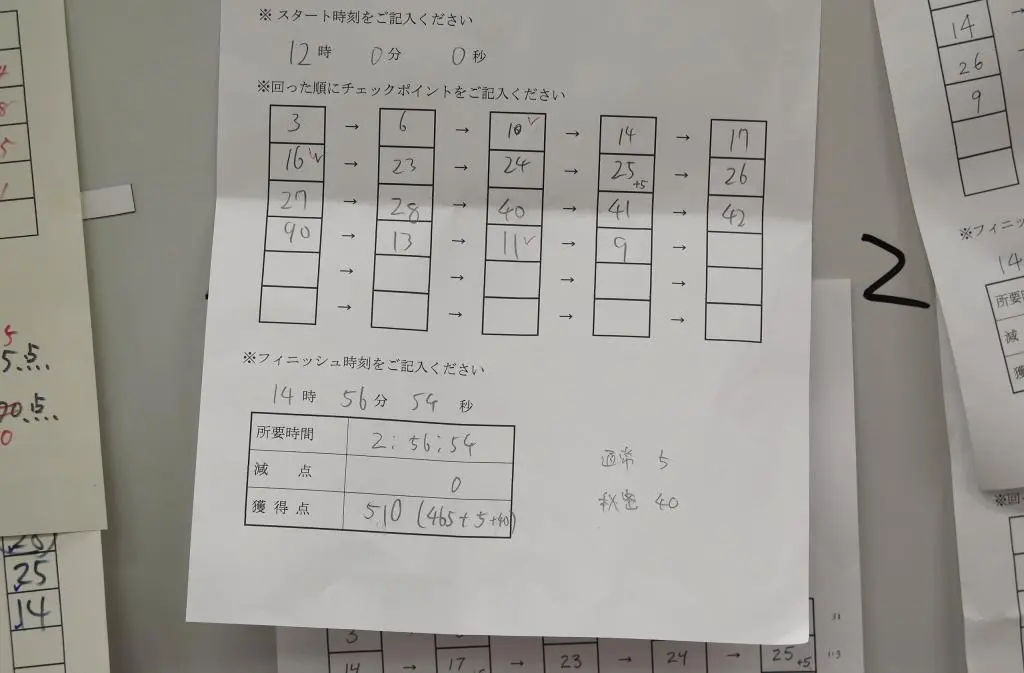 ※ スタート時刻をご記入ください
12時 0分 0秒
※回った順にチェックポイントをご記入ください
3 → 6 → 10✓ → 14 → 17
16✓ → 23 → 24 → 25+5 → 26
27 → 28 → 40 → 41 → 42
90 → 13 → 11✓ → 9 →
→ → → →
→ → → →
※フィニッシュ時刻をご記入ください
14時 56分 54秒
所要時間 2:56:54
減点 0
獲得点 510 (465+5+40)
通常 5
秘密 40
2
14
26
9
※フィニッ
14
所要時
減
獲
※回
5
5点
点
0
25
14
3
14 → 17 → 23 → 24 → 25+5